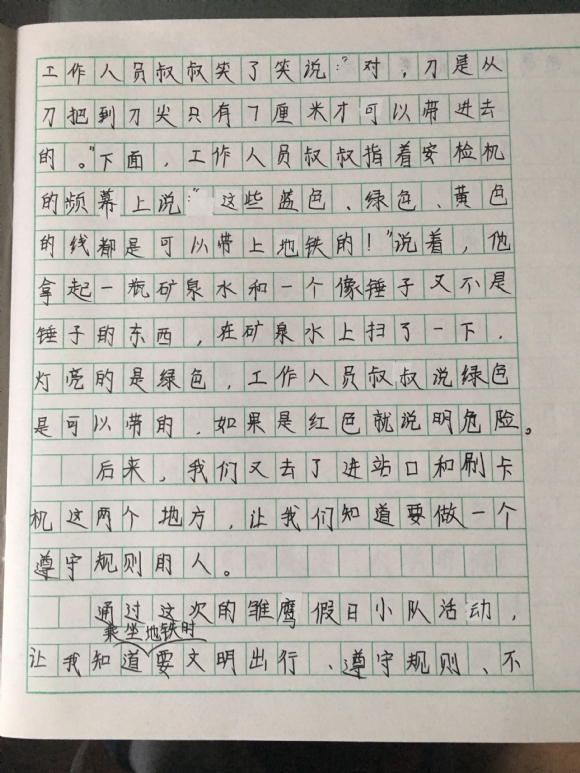 工作人员叔叔笑了笑说:"对，刀是从
刀把到刀尖只有7厘米才可以带进去
的。"下面，工作人员叔叔指着安检机
的频幕上说:"这些蓝色、绿色、黄色
的线都是可以带上地铁的!"说着，他
拿起一瓶矿泉水和一个像锤子又不是
锤子的东西，在矿泉水上扫了一下，
灯亮的是绿色，工作人员叔叔说绿色
是可以带的，如果是红色就说明危险。
后来，我们又去了进站口和刷卡
机这两个地方，让我们知道要做一个
遵守规则的人。
通过这次的雏鹰假日小队活动，
乘坐地铁时
让我知道要文明出行、遵守规则、不